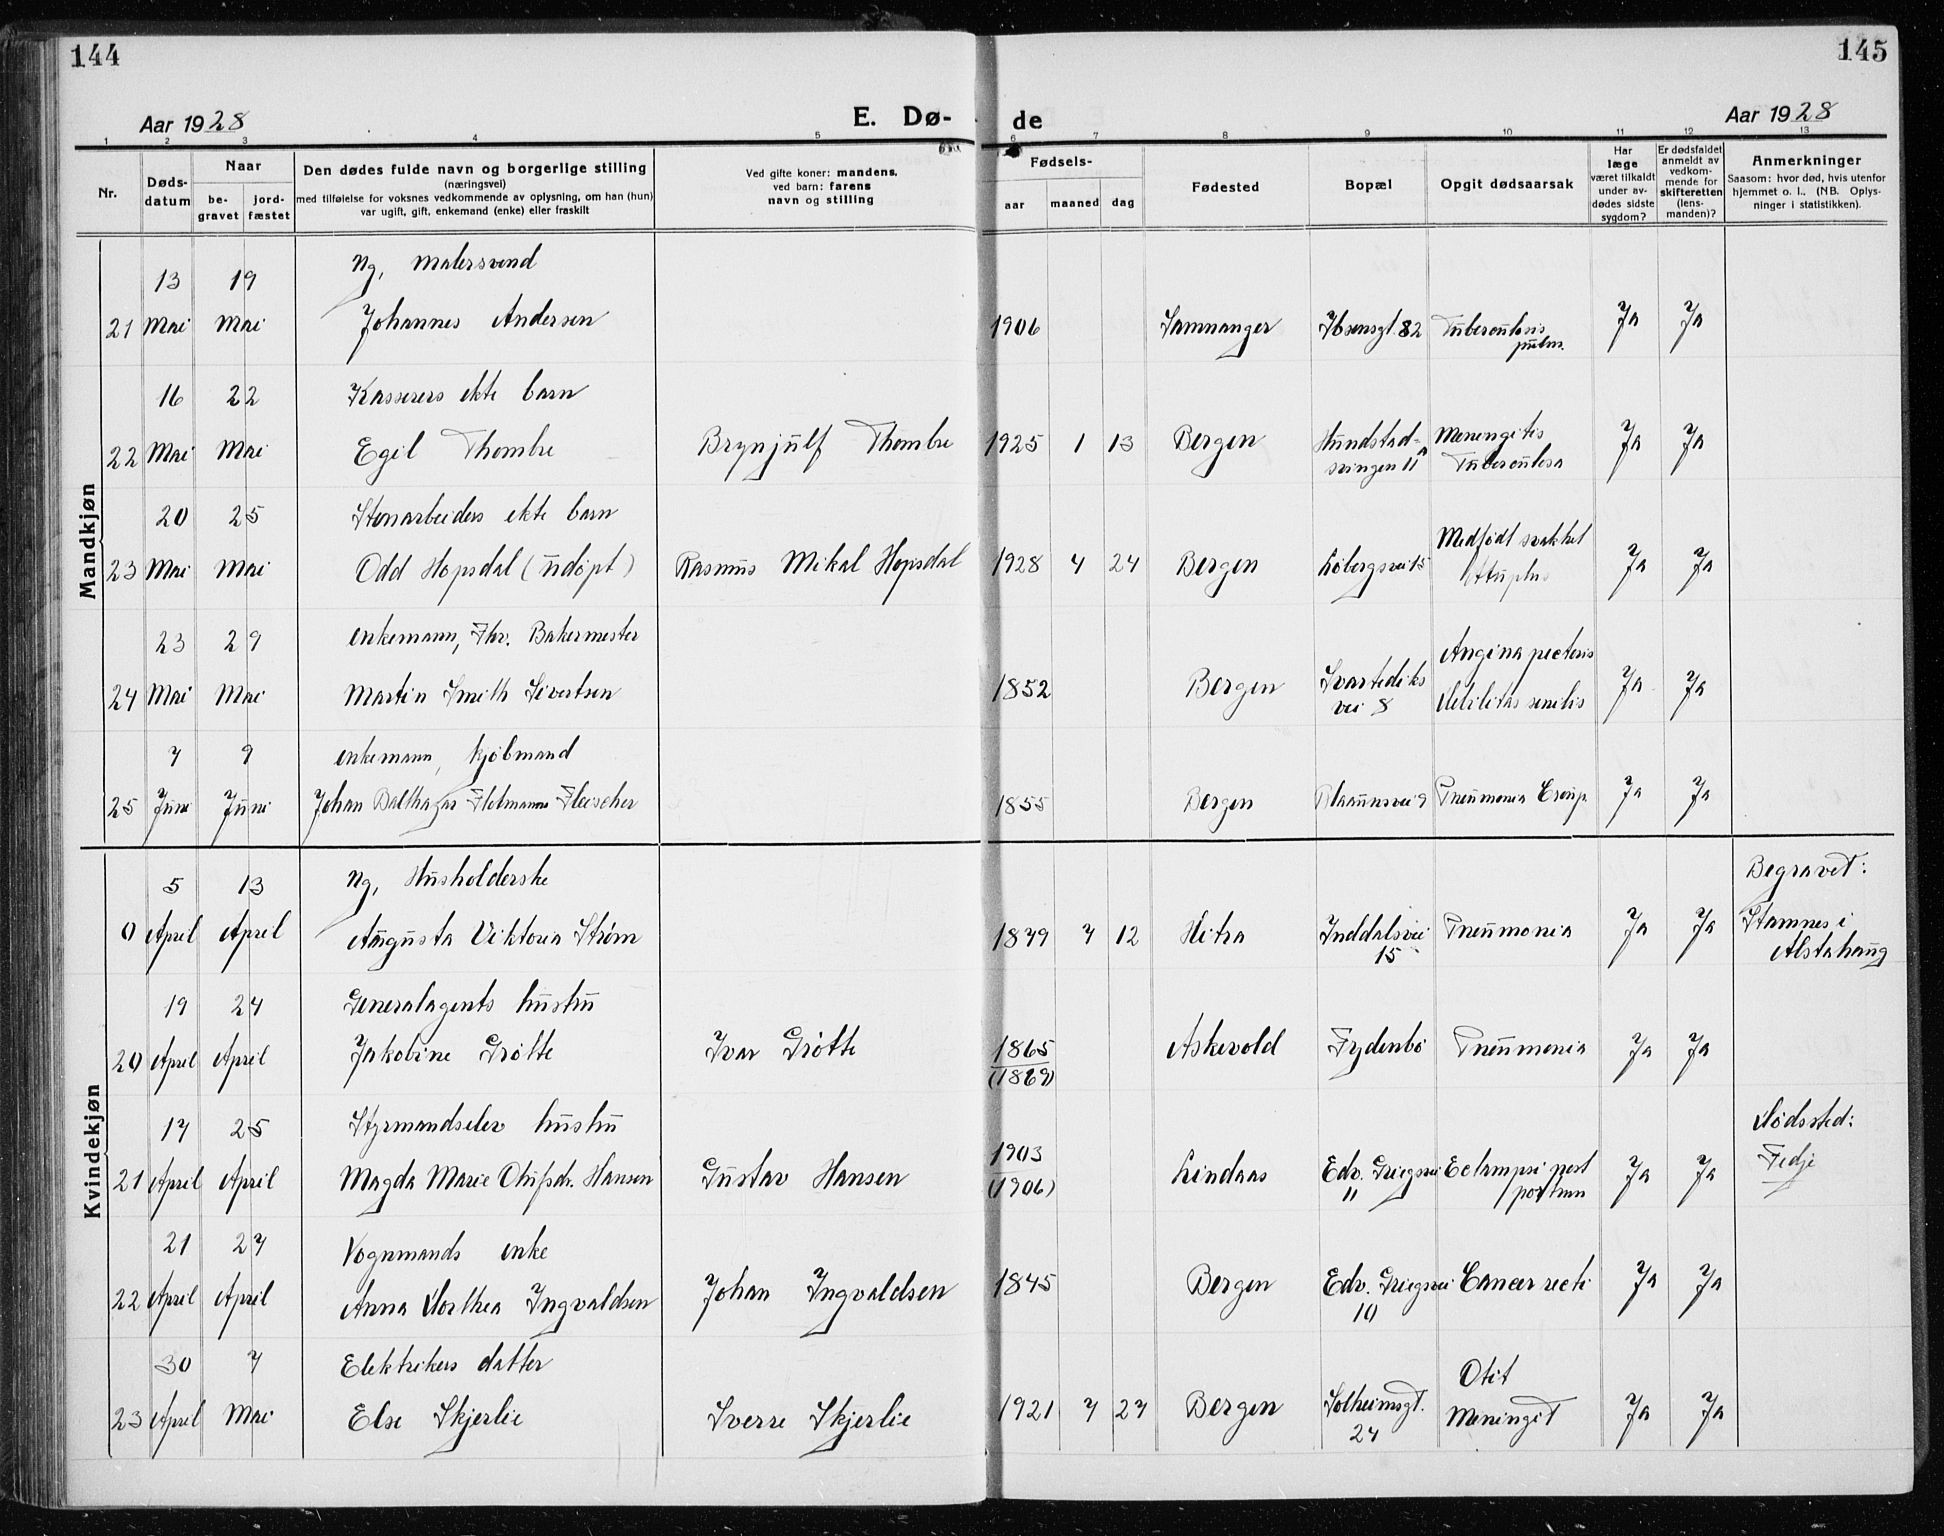 144
145
Aar 1928
E. Dø-
de
Aar 1928
1 2 3 4 5 6 7 8 9 10 11 12 13
Nr.
Døds-
datum
Naar
be-
gravet
jord-
fæstet
Den dødes fulde navn og borgerlige stilling
(næringsvei)
med tilføielse for voksnes vedkommende av oplysning, om han (hun)
var ugift, gift, enkemand (enke) eller fraskilt
Ved gifte koner: mandens,
ved barn: farens
navn og stilling
Fødsels-
aar maaned dag
Fødested
Bopæl
Opgit dødsaarsak
Har
læge
været tilkaldt
under av-
dødes sidste
sygdom?
Er dødsfaldet
anmeldt av
vedkom-
mende for
skifteretten
(lens-
manden)?
Anmerkninger
Saasom: hvor død, hvis utenfor
hjemmet o. l., (NB. Oplys-
ninger i statistikken).
Mandkjøn
13 19 Ug, Malersvend
21 Mai Mai Johannes Andersen 1906 Samnanger Ibsensgt. 82 Tuberculosis Ja Ja
pulm.
16 22 Kasserers ekte barn
22 Mai Mai Egil Thombre Brynjulf Thombre 1925 1 13 Bergen Hundstad- Meningitis Ja Ja
svingen 11 A Tuberculosa
20 25 Stenarbeiders ekte barn Medfødt svakhet
23 Mai Mai Odd Hopsdal (udøpt) Rasmus Mikal Hopsdal 1928 4 24 Bergen Løbergsvei 15 Ja Ja
23 29 enkemann, Fhv. Bakermester Angina pectoris
24 Mai Mai Martin Smith Sivertsen 1852 Bergen Svartediks Debilitas senilis Ja Ja
vei 8
7 9 enkemann, kjøbmand
25 Juni Juni Johan Balthazar Flotmann Fleischer 1855 Bergen Blaauwsvei 9 Pneumonia Croup. Ja Ja
Kvindekjøn
5 13 Ug, Husholderske Begravet:
0 April April Augusta Viktoria Strøm 1879 7 12 Hitra Inddalsvei Pneumonia Ja Ja Stamnes i
15 Alstahaug
19 24 Generalagents hustru
20 April April Jakobine Grøtte Ivar Grøtte 1865 Askevold Fydenbø Pneumonia Ja Ja
(1869)
17 25 Styrmandselev hustru Dødssted:
21 April April Magda Marie Olufsdr. Hansen Gustav Hansen 1903 Lindaas Edv. Griegsvei Eclampsi post Ja Ja Fedje
(1906) 11 partum
21 27 Vognmands enke
22 April April Anna Dorthea Ingvaldsen Johan Ingvaldsen 1845 Bergen Edv. Griegsvei Cancer recti Ja Ja
10
30 7 Elektrikers datter Otit
23 April Mai Else Skjerlie Sverre Skjerlie 1921 7 27 Bergen Solheimsgt. Meningit Ja Ja
24